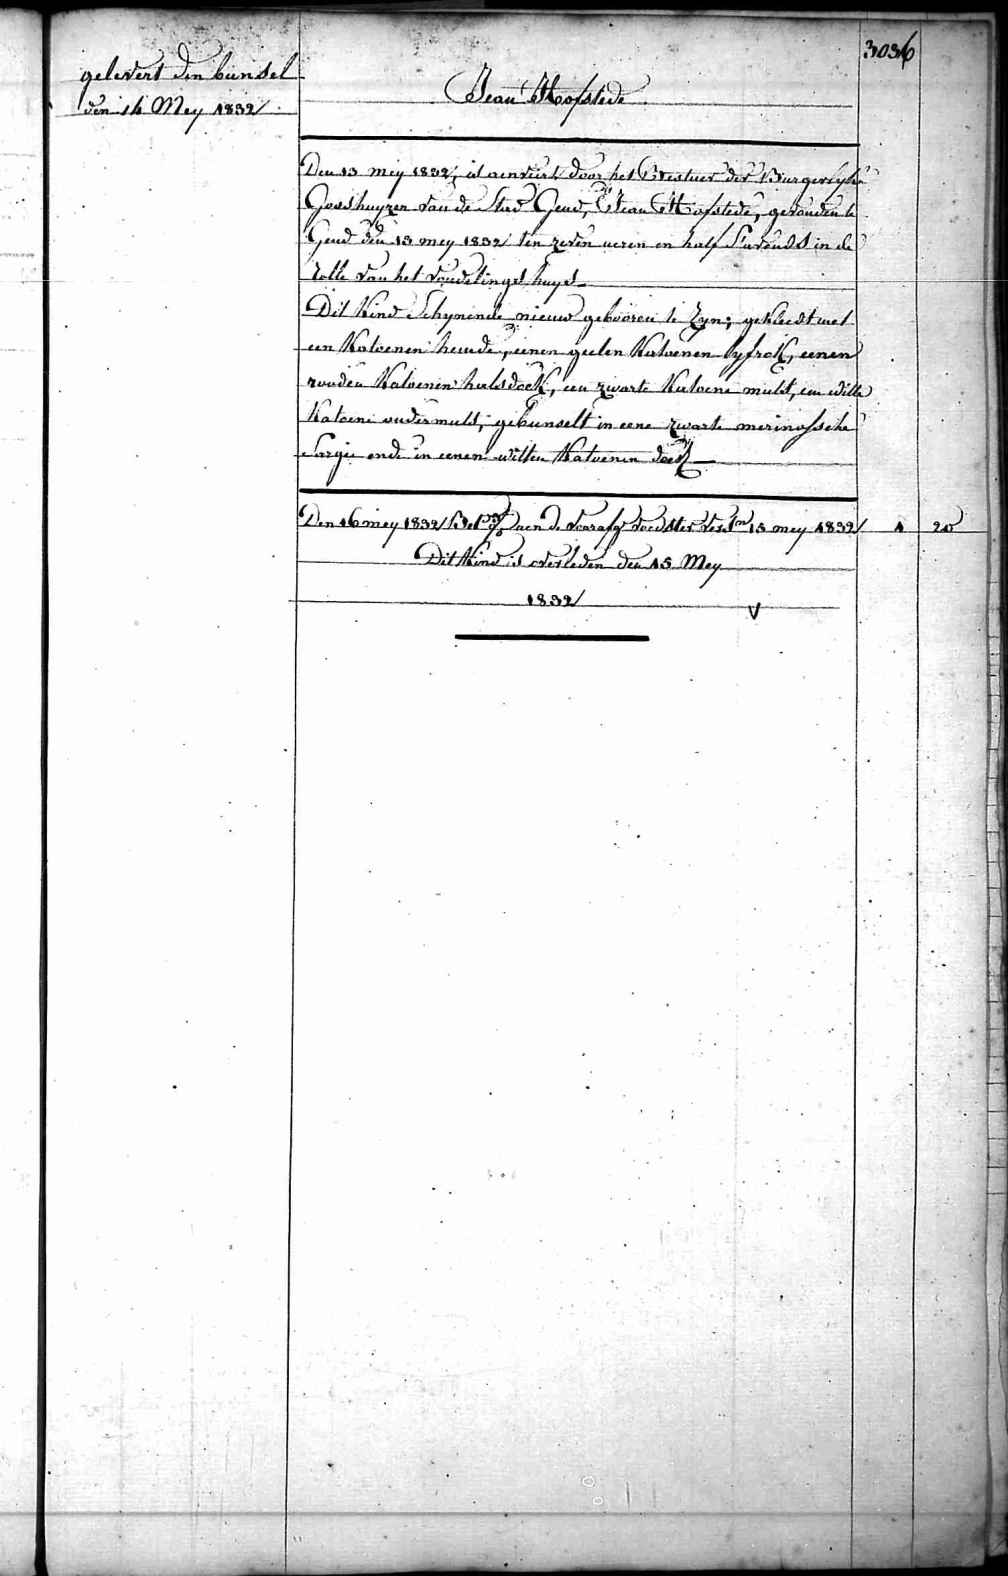 3036
gelevert den bunsel
den 14 Mey 1832
Jean Hofstede
Den 13 mey 1832, is aenveirt door het Bestuer der Burgerlyke
Godshuyzen van de Stad Gend, Jean Hofstede, gevonden te
Gend den 13 mey 1832 ten zeven ueren en half s'avonds in de
rolle van het vondelingshuys
Dit Kind Schynende nieuw gebooren te Zyn; gekleedt met
een Katoenen hemde, eenen geelen Katoenen lyfrok, eenen
rooden Katoenen halsdoek, een zwarte Katoene muts, een witte
Katoene ondermuts, gebunselt in eene zwarte merinossche
Sargie ende in eenen witten Katoenen doek
Den 16 mey 1832 Bet aen de voedster 15 mey 1832 1 20
Dit Kind is overleden den 15 Mey
1832